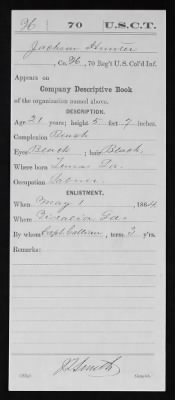 70 U.S.C.T.
Jackson
, Co. , 70 Reg't U.S. Col'd Inf.
Appears on
Company Descriptive Book
of the organization named above.
DESCRIPTION.
Age 21 years; height 5 feet 7 inches.
Complexion Black
Eyes Black ; hair Black
Where born La.
Occupation Labor
ENLISTMENT.
When May 1 , 1864
Where Vidalia La.
By whom Capt , term 3 y'rs.
Remarks:
Smith
Copyist.